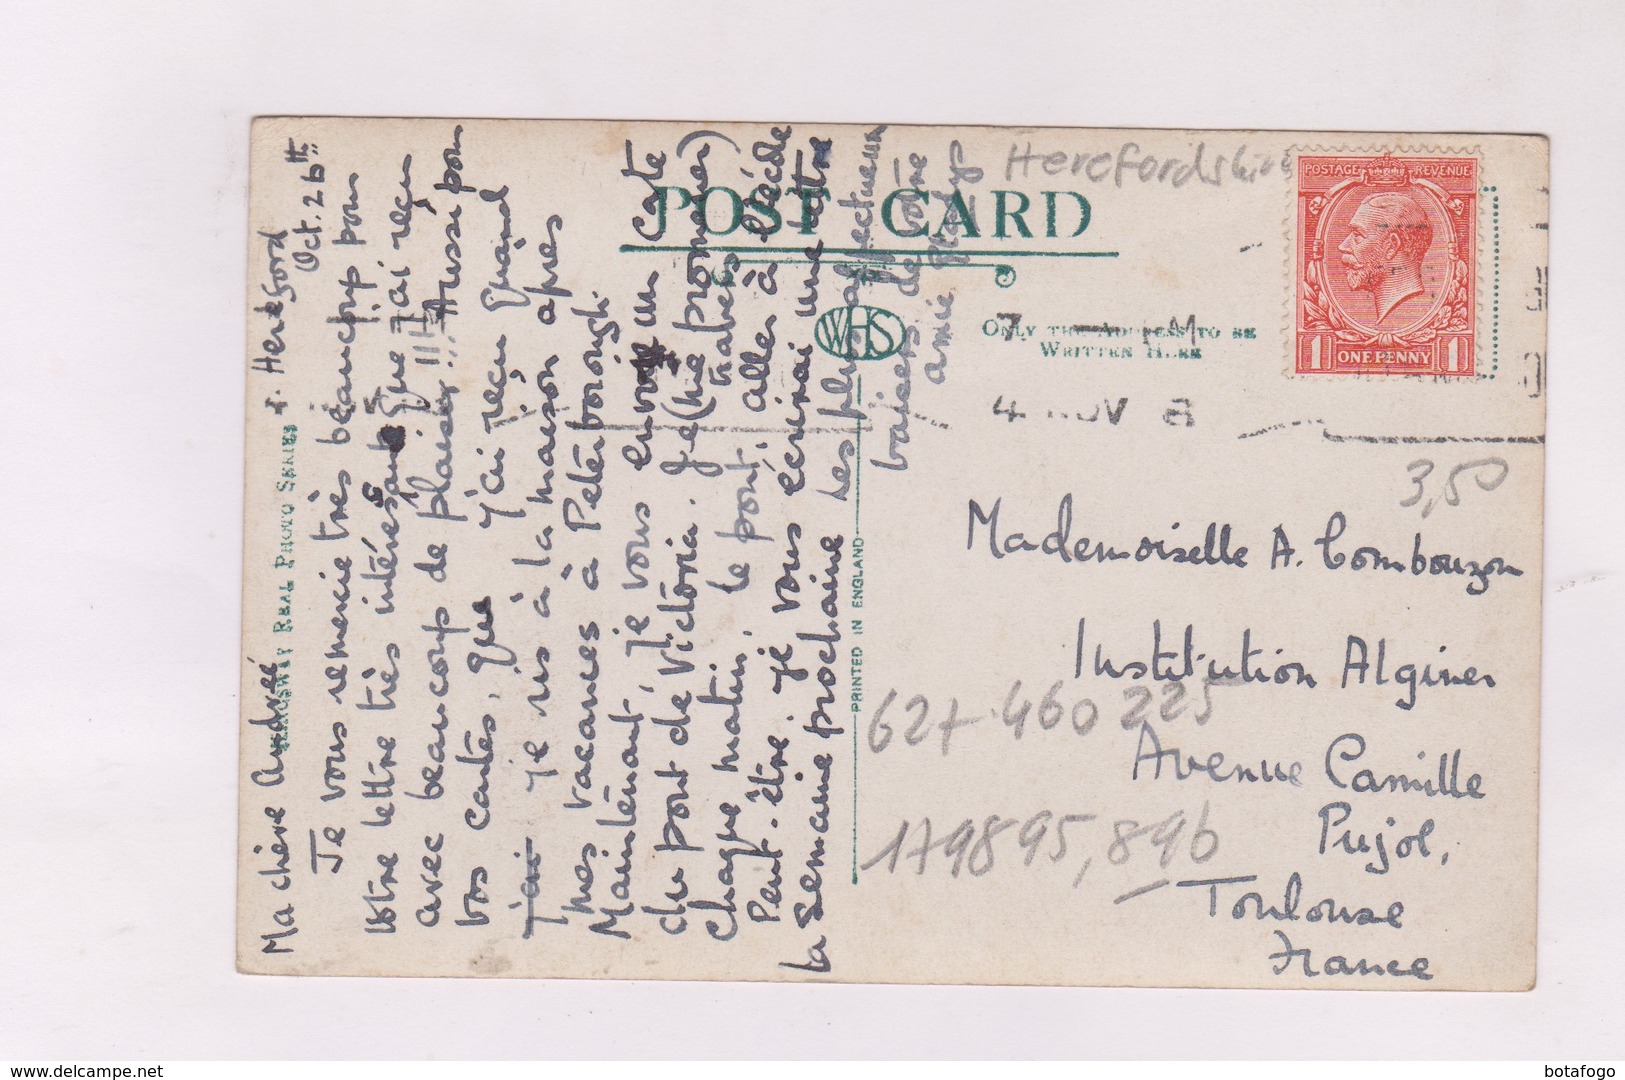 Hereford
Oct. 26th
Ma chère Andrée
Je vous remercie très beaucoup pour
votre lettre très intéresant que j'ai reçu
avec beaucoup de plaiser!!! Aussi pour
vos cartes, que j'ai reçu quand
j'ai je suis à la maison après
mes vacances à Peterborough.
Maintenant, je vous envoie un carte
du pont de Victoria. Je (me promener)
chaque matin, le pont, alle à l'école
Peut-être je vous écrirai une lettre
la Semaine prochaine Les plus affectueux
baisers de votre
amie Gladys
KINGSWAY REAL PHOTO SERIES
POST CARD
WHS
ONLY THE ADDRESS TO BE
WRITTEN HERE
PRINTED IN ENGLAND
Herefordshire
POSTAGE REVENUE
1 ONE PENNY 1
7 - PM
4 NOV
3,50
Mademoiselle A. Combouzon
Institution Alginer
627.460 225
Avenue Camille
Pujol,
179895,896
Toulouse
France
botafogo